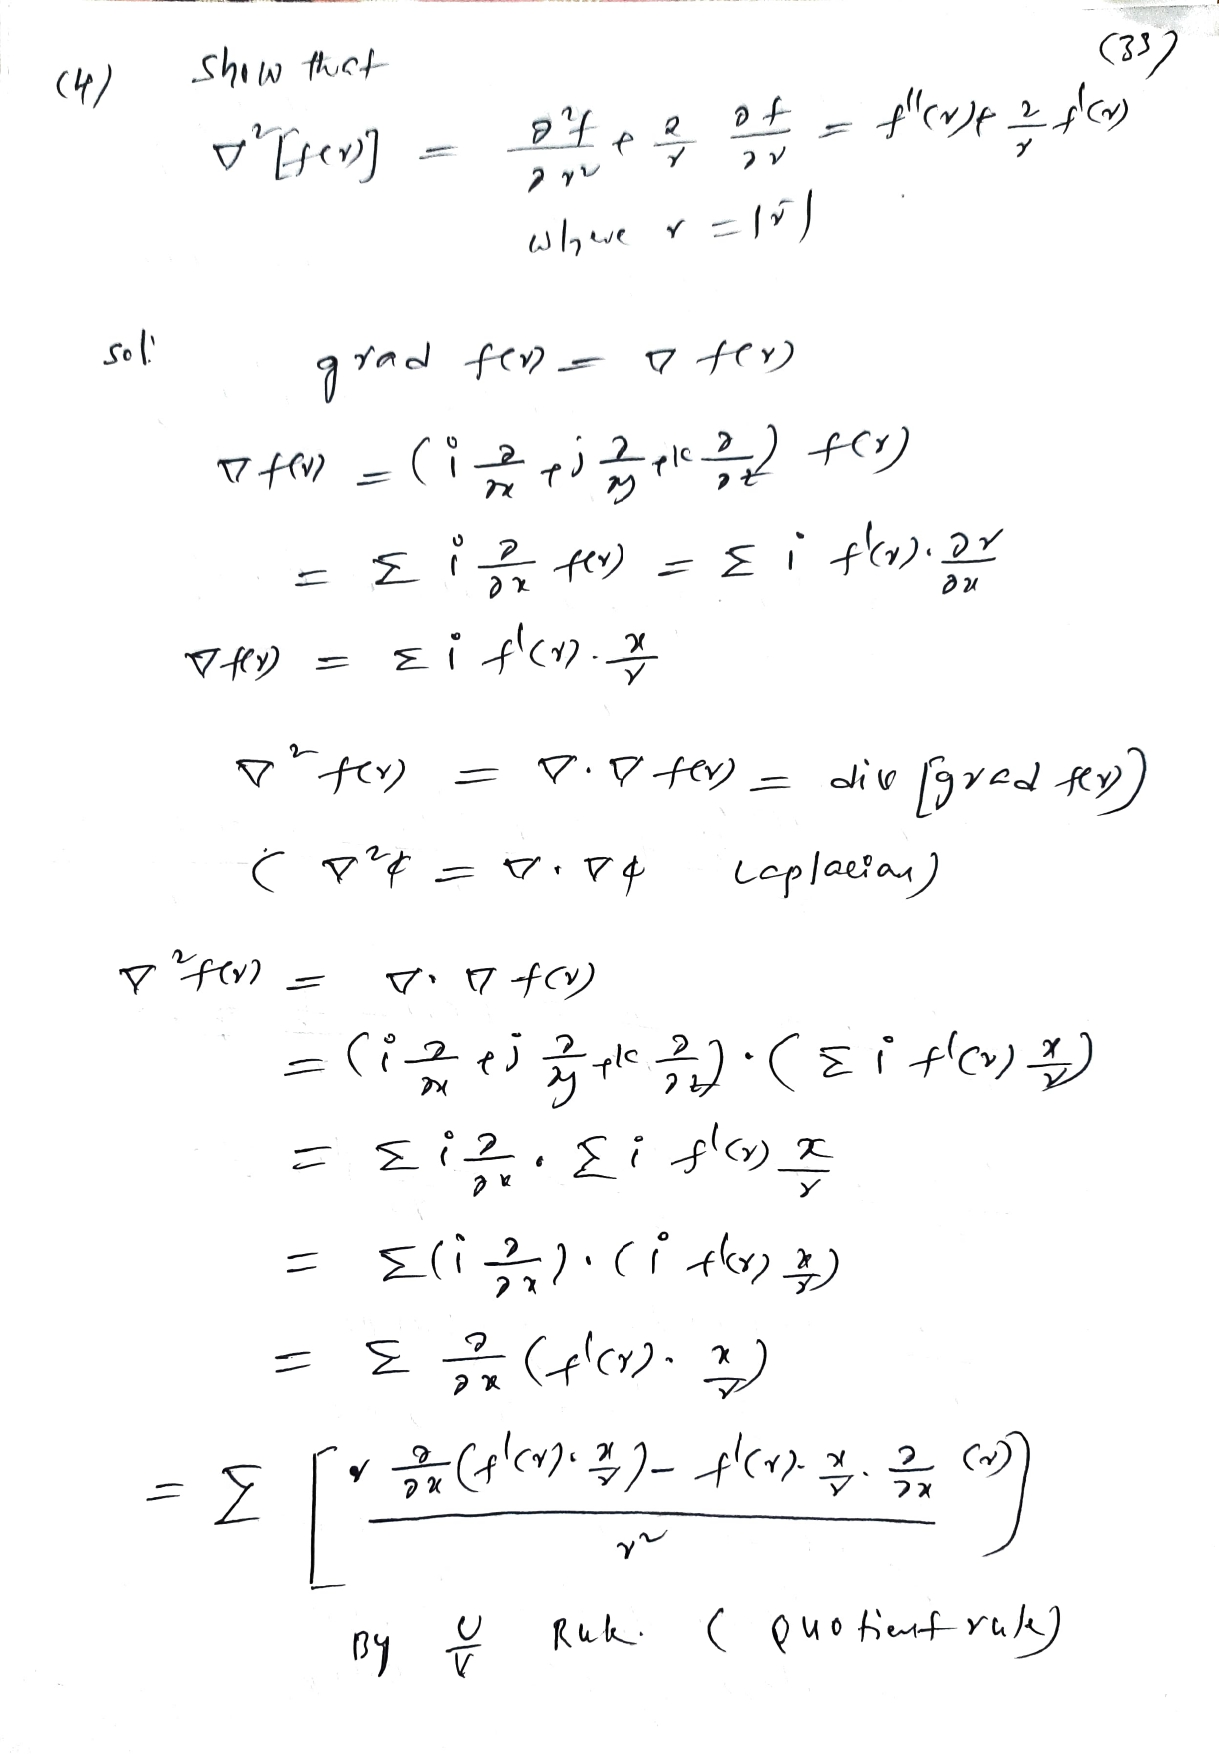 (33)
(4) Show that
∇²[f(r)] = ∂²f/∂r² + 2/r ∂f/∂r = f''(r) + 2/r f'(r)
where r = |r̄|
Sol:
grad f(r) = ∇ f(r)
∇ f(r) = (i ∂/∂x + j ∂/∂y + k ∂/∂z) f(r)
= Σ i ∂/∂x f(r) = Σ i f'(r). ∂r/∂x
∇ f(r) = Σ i f'(r). x/r
∇² f(r) = ∇.∇ f(r) = div [grad f(r)]
(∇²φ = ∇.∇φ Laplacian)
∇² f(r) = ∇.∇ f(r)
= (i ∂/∂x + j ∂/∂y + k ∂/∂z) . (Σ i f'(r) x/r)
= Σ i ∂/∂x . Σ i f'(r) x/r
= Σ(i ∂/∂x).(i f'(r) x/r)
= Σ ∂/∂x (f'(r). x/r)
= Σ [r ∂/∂x (f'(r). x/r) - f'(r). x/r. ∂/∂x (r) / r²]
By U/V Rule. (Quotient rule)